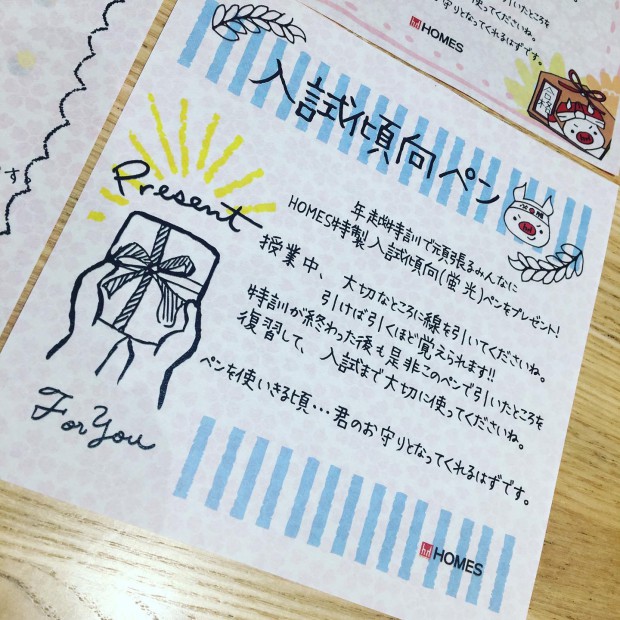 引いたところを
使ってくださいね。
守りとなってくれるはずです。
HOMES
す。
入試傾向ペン
Present
年越特訓で頑張るみんなに
HOMES特製入試傾向(蛍光)ペンをプレゼント!
授業中、大切なところに線を引いてくださいね。
引けば引くほど覚えられます!!
特訓が終わった後も是非このペンで引いたところを
復習して、入試まで大切に使ってくださいね。
ペンを使いきる頃…君のお守りとなってくれるはずです。
For You
HOMES